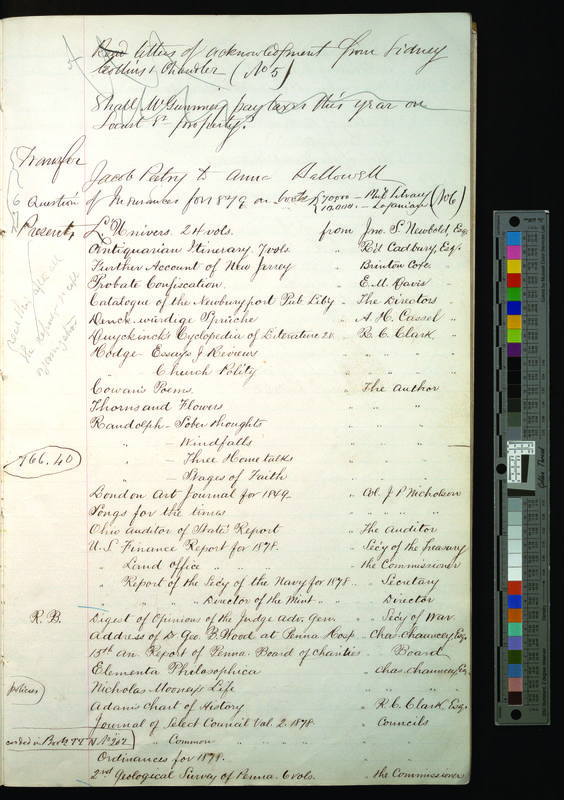 Read letters of acknowledgment from Sidney
Collins & Chandler (No 5)
Shall Mr pay taxes this year on
Locust St property?
Transfer
Jacob Peetry to Anna Hallowell
Question of Insurance for 1879 on books 70000 — Phil Library (No 6)
— Loganian
Presents L'Univers. 24 vols. from Jno. S. Newbold Esq
Antiquarian Itinerary 7 vols. " R'd Cadbury, Esq.
Further Account of New Jersey " Brinton Coxe, "
Probate Confiscation. " E. M. Davis
Catalogue of the Newburyport Pub. Liby " The Directors "
Denck-würdige Sprüche " A. H. Cassel "
Duyckinck's Cyclopedia of Literature 2v. " R. C. Clark.
Hodge Essays & Reviews " " " "
" Church Polity " " " "
Cowan's Poems. " The Author
Thorns and Flowers " " "
Randolph — Sober thoughts " " "
" — Windfalls " " "
766.40
" — Three Home talks " " "
" — Stages of Faith " " "
London Art Journal for 1849. " Col. J P Nicholson
Songs for the times " " "
Ohio Auditor of State's Report " The Auditor
U.S Finance Report for 1878. " Sec'y of the Treasury
" Land office " " " " the Commissioner
" Report of the Sec'y of the Navy for 1878. " Secretary
" " " " Director of the Mint " " Director
R. B. Digest of Opinions of the Judge Adv. Gen. " Sec'y of War
Address of Dr Geo. B. Wood at Penna Hosp. " Chas. Chauncey Esq
18th An Report of Penna. Board of Charities " Board
Elementa Philosophica " Chas. Chauncey Esq.
Nicholas Mooney's Life " " " "
Adam's Chart of History " R. C. Clark, Esq.
Journal of Select Council Vol. 2. 1878. " Councils
" Common " " " " " "
Ordinances for 1878. " "
2nd Geological Survey of Penna. 6 vols. " the Commissioners